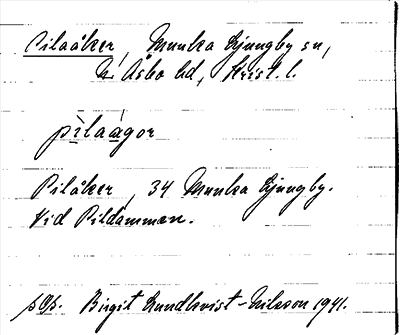 Pilaåker, Munka Ljungby sn,
N. Åsbo hd, Krist. l.
pìlaágor
Pilåker, 34 Munka Ljungby.
Vid Pildammen.
Birgit Lundkvist-Nilsson 1941.